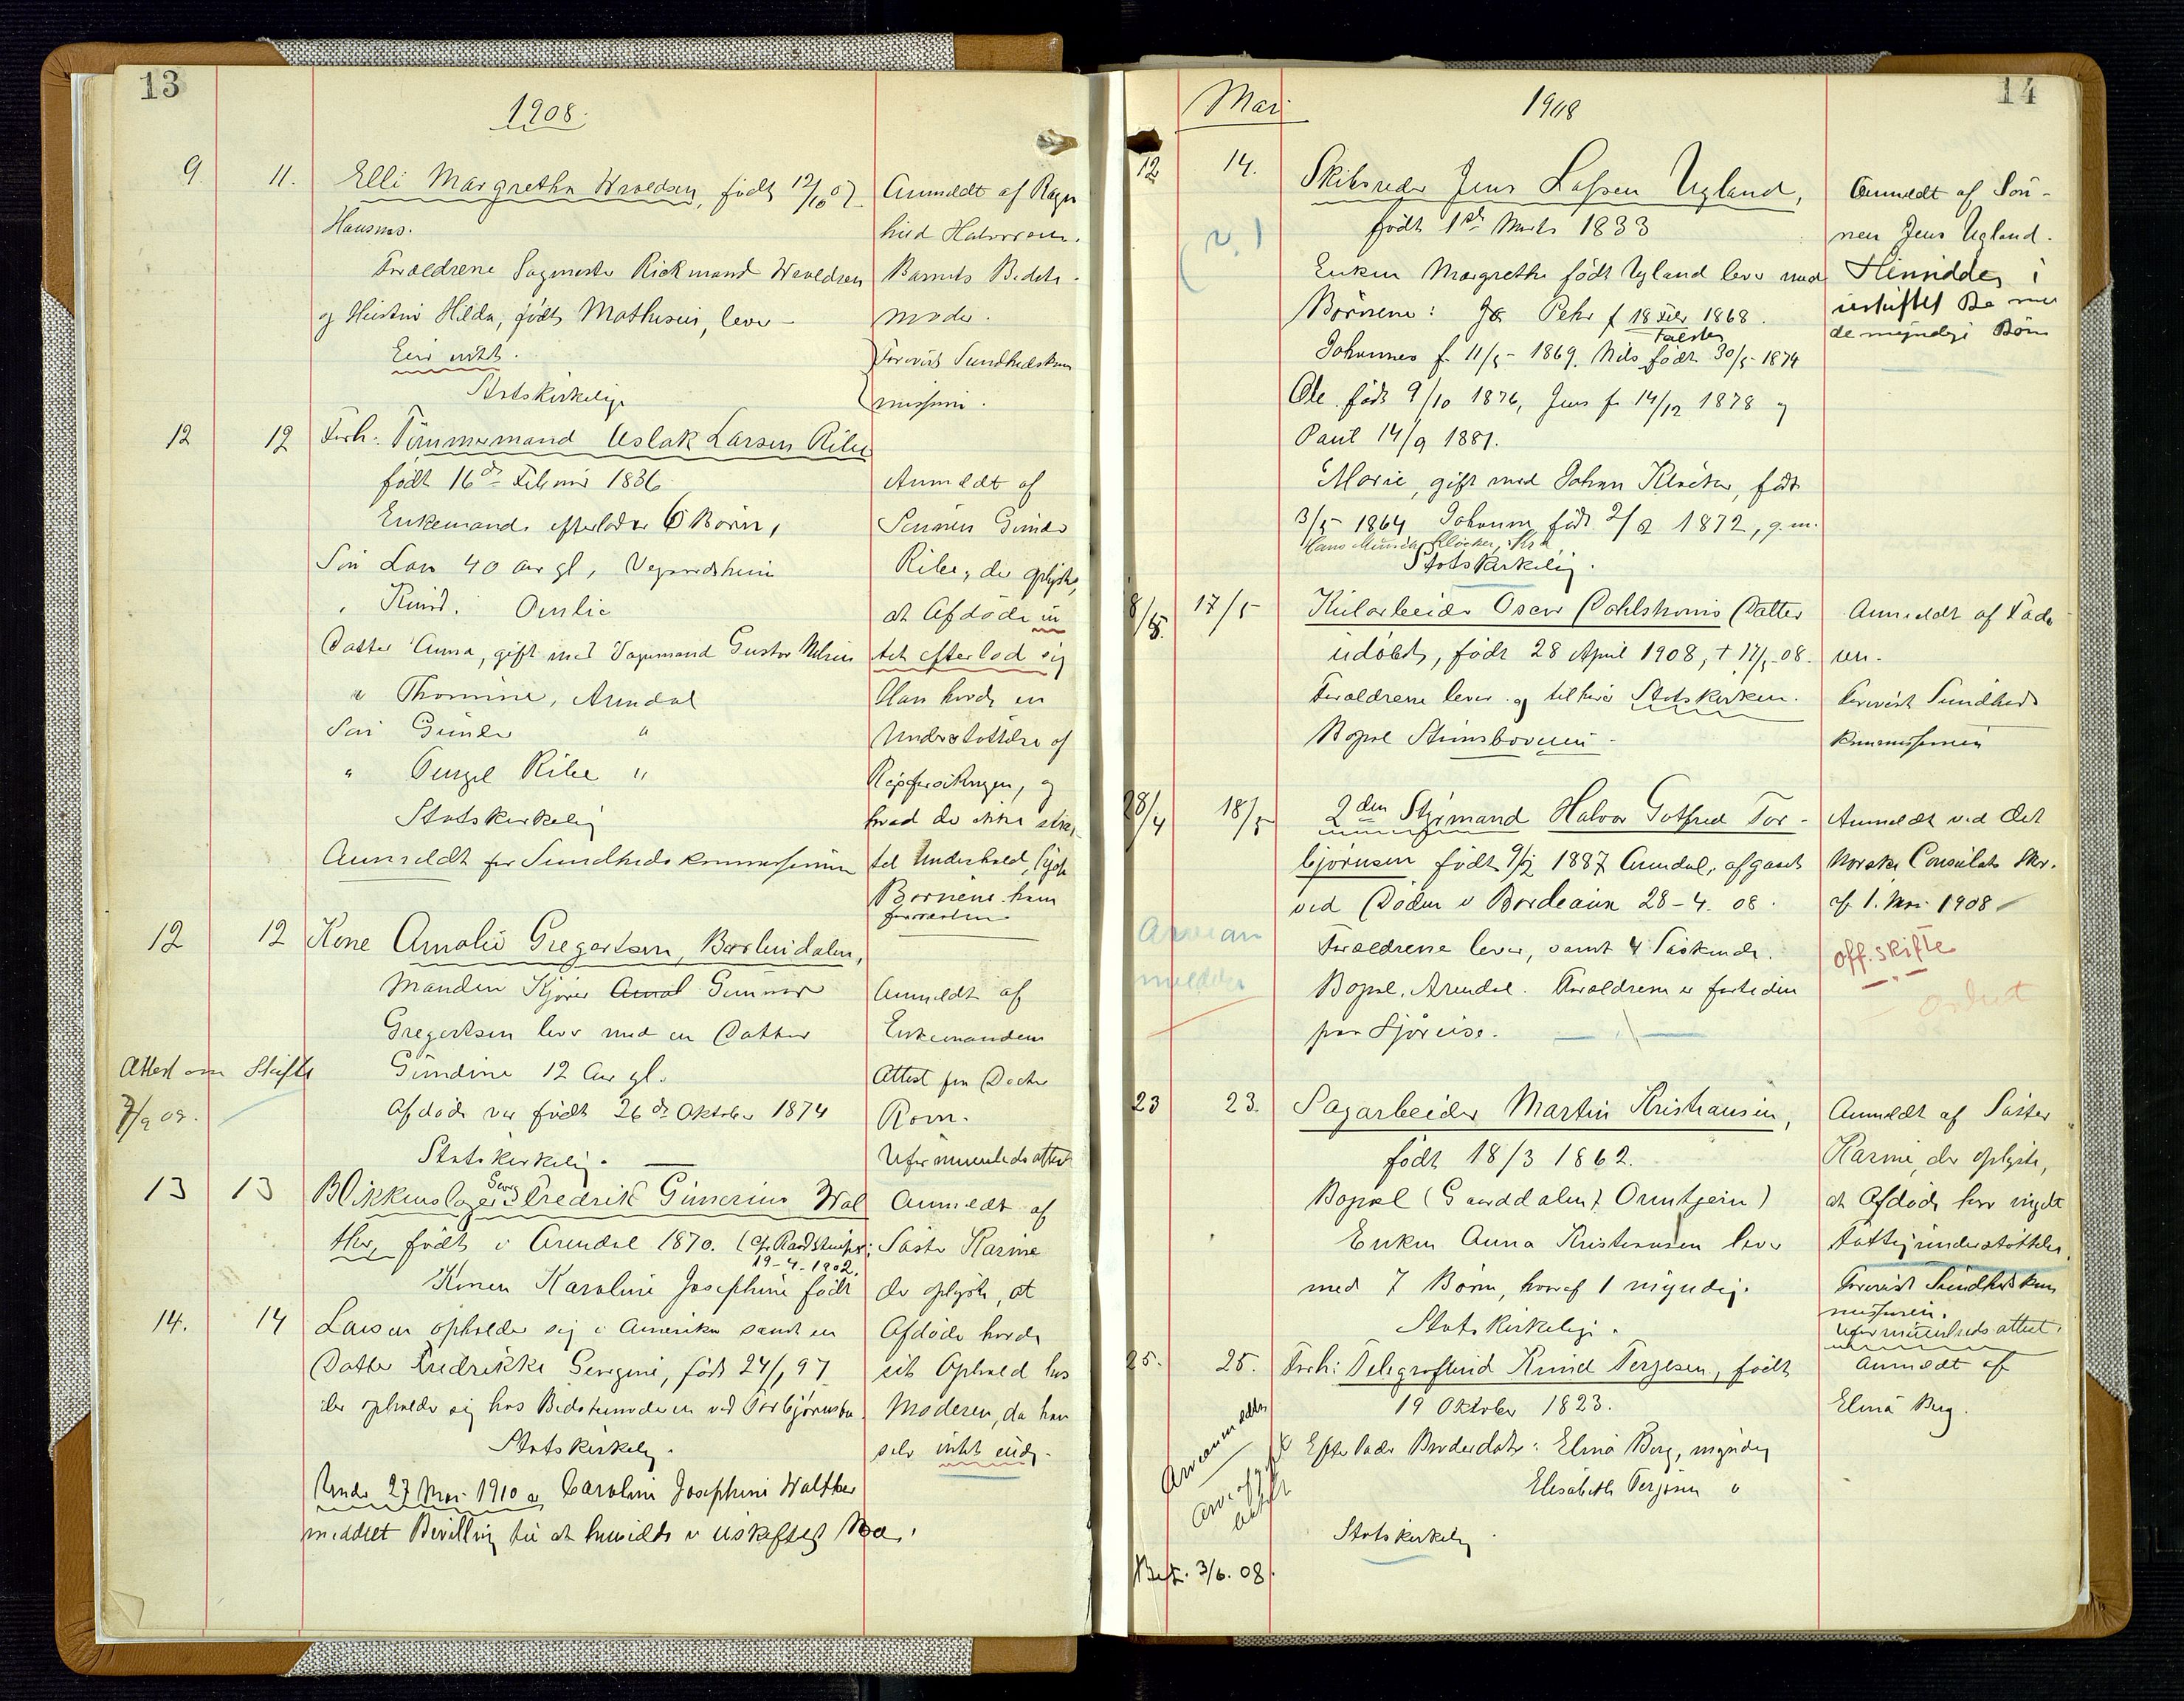 13
1908.
9. 11. Elli Margretha Wroldsen, født 12/10 07
Hausnes.
Forældrene Sagmester Rickmand Wroldsen
og Hustru Hilda, født Mathisen, lever
Eier intet.
Statskirkelige
Anmeldt af Ragn
hild Halvorsen.
Barnets Bedste-
moder.
Forevist Sundhedskom
missionen.
12 12 Forh. Tømmermand Aslak Larsen Ribe
født 16de Februar 1836
Enkemand, efterlader 6 Børn,
Søn Lars 40 Aar gl, Vegaardsheien
" Knud. Omlie
Datter Anna, gift med Gustav Nilsen
" Thomine, Arendal
Søn Gunder "
" Tergel Ribe "
Statskirkelig
Anmeldt for Sundhedskommissionen
Anmeldt af
Sønnen Gunder
Ribe, der oplyste,
at Afdøde in
tet efterlod sig
Han havde en
Understøttelse af
og
hvad der ikke
til Underhold,
Børnene ham
12 12 Kone Amalie Gregertsen, Barbudalen,
Manden Kjører Amal Gunnar
Gregertsen lever med en Datter
Gundine 12 Aar gl.
Afdøde var født 26de Oktober 1874
Statskirkelig.
Attest om Skifte
7/9 08.
Anmeldt af
Enkemanden
Attest fra Doctor
Rorn.
Uformuenhedsattest
13 13 Blikkenslager Georg Fredrik Gunerius Wal
ther, født i Arendal 1870. (
19-4-1902.
Konen Karoline Josephine født
14. 14 Larsen opholder sig i Amerika samt en
Datter Fredrikke Georgine, født 24/1 97
der opholder sig hos Bedstemoderen ved Torbjørnsbu.
Statskirkelig.
Under 27 Mai 1910 er Caroline Josephine Walther
meddelt Bevilling til at hensidde i uskiftet Bo.
Anmeldt af
Søster Karine
der oplyste, at
Afdøde havde
sit Ophold hos
Moderen, da han
selv intet eiede.
14
Mai 1908
12 14. Skibsreder Jens Lassen Ugland,
født 1ste Marts 1833
Enken Margrethe født Ugland lever med
Børnene: Peder f 18 Febr 1868.
Johannes f. 11/5- 1869. Nils født 30/5- 1874
Ole født 9/10 1876, Jens f. 14/12 1878 og
Paul 14/9 1881.
Marie, gift med Johan Kløcker, født
3/5- 1864 Johanne født 2/2 1872, g.m.
Hans Kløcker,
Statskirkelig.
Anmeldt af Søn-
nen Jens Ugland.
Hensidder i
uskiftet Bo med
de myndige Børn
8/5. 17/5 Kularbeider Oscar Dahlstrøms Datter
udøbt, født 28 April 1908, + 17/5-08.
Forældrene lever og tilhører Statskirken.
Bopæl Stinsboveien.
Anmeldt af Fade
ren.
Forevist Sundheds
kommissionen
28/4 18/5 2den Styrmand Halvor Gotfred Tor-
bjørnsen født 9/12 1887 Arendal, afgaaet
ved Døden i Bordeaux 28-4-08.
Forældrene lever, samt 4 Søskende.
Bopæl, Arendal. Forældrene er fortiden
paa Sjøreise.
Anmeldt ved det
Norske Consulats Skr.
af 1. Mai 1908
off. skifte
23 23. Sagarbeider Martin Kristiansen,
født 18/3 1862.
Bopæl (Gaarddalen, Ormtjein)
Enken Anna Kristiansen lever
med 7 Børn, hvoraf 1 myndig.
Statskirkelige.
Anmeldt af Søster
Karine, der oplyste,
at Afdøde har nydt
Fattigunderstøttelse.
Forevist Sundhedskom
missionen.
Uformuenhedsattest.
25. 25. Forh: Telegrafbud Knud Terjesen, født
19 Oktober 1823.
Efterlader Broderdøtre: Elina Berg, myndig
Elisabeth Terjesen "
Statskirkelig.
Arveanmeldes
Arveafgift
betalt
Bet. 3/6. 08.
Anmeldt af
Elina Berg.